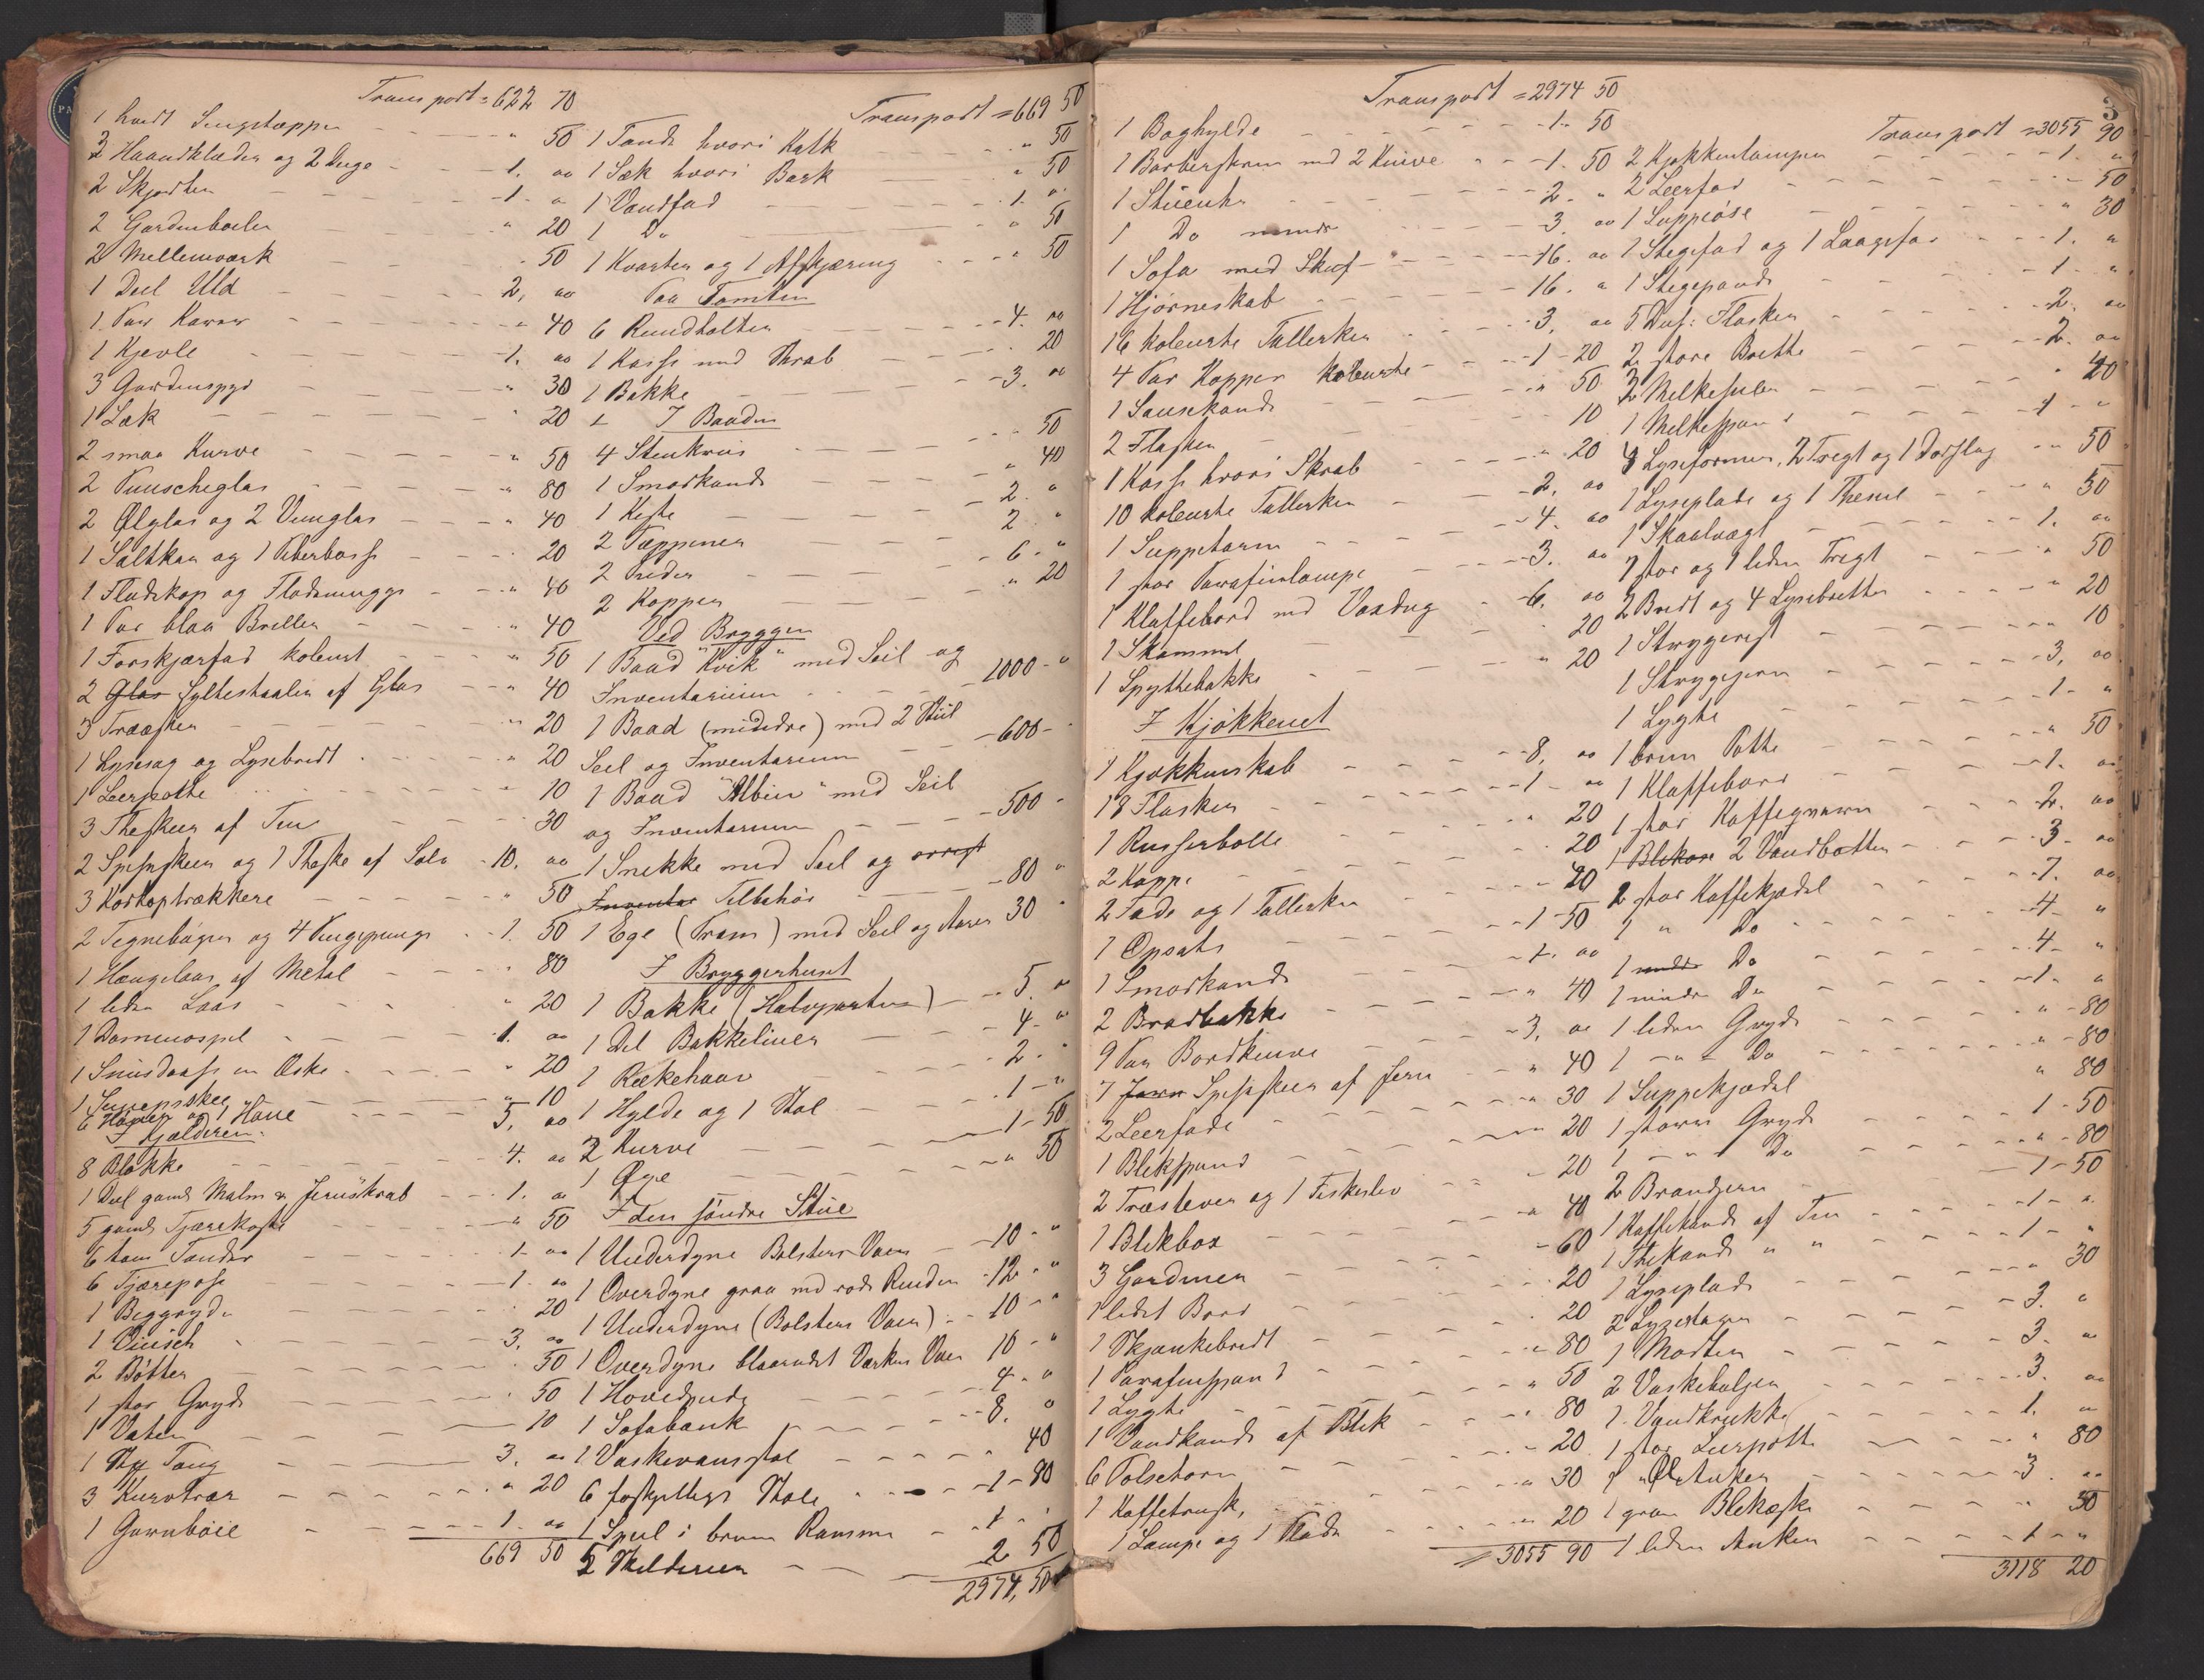 Transport = 622 70
1 hvidt Sengetæppe " 50
3 Haandklæder og 2 Duge 1. "
2 Skjorter 1. "
2 Gardenboiler " 20
2 Mellemværk " 50
1 Deel Uld 2. "
1 Par Karver " 40
1 Kjevle 1. "
3 Gardenspyd " 30
1 Læk " 20
2 smaa Kurve " 50
2 Punscheglas " 80
2 Ølglas og 2 Vinglas " 40
1 Saltkar og 1 Peberbøsse " 20
1 Flødekop og Flødemugge " 40
1 Par blaa Briller " 40
1 Forskjærfad koleurt " 50
2 Glas Sylteskaaler af Glas " 40
3 Træsker " 20
1 Lysesag og Lysebredt " 20
1 Leerpotte " 10
3 Theskeer af Tin 30
2 Spiseskeer og 1 Theske af Sølv 10. "
3 Korkoptrækkere " 50
2 Tegnebøger og 4 Pengepunge 1. 50
1 Hængelaas af Metal " 80
1 liden Laas " 20
1 Domenospil 1. "
1 Snusdaase en Æske " 20
1 Sennepsskee " 10
6 Høvler og 1 Hane 5. "
I Kjælderen:
8 Blokke 4. "
1 Deel gamle Malm & Jernskrab 1. "
5 gamle Tjærekoste " 50
6 tom Tønder 1. "
6 Tjærepose 1. "
1 Beggryde 20
1 Vinsch 3. "
2 Bøtter " 50
1 stor Gryde " 50
1 Vater 10
1 Stk Toug 3. "
3 Kurvtrær " 20
1 Garnbøie 1. "
669 50
Transport = 669 50
1 Tønde hvori Kalk " 50
1 Sæk hvori Bark " 50
1 Vandfad 1. "
1 Do " 50
1 Kvarter og 1 Afskjæring " 50
Paa Tomten
6 Rundholter 4. "
1 Kasse med Skrab 20
1 Bakke 3. "
I Baaden
4 Stenkrus 50
1 Smørkande " 40
1 Kiste 2. "
2 Tæppener 2. "
2 Puder 6. "
2 Kopper " 20
Ved Bryggen
1 Baad "Kvik" med Seil og
Inventarium 1000 - "
1 Baad (mindre) med 2 Stiil
Seil og Inventarium 600 - "
1 Baad "Albin" med Seil
og Inventarium 500 -
1 Snekke med Seil og øvrigt
Inventar Tilbehør 80 "
1 Ege (Pram) med Seil og Aarer 30 "
I Bryggerhuset
1 Bakke (Halvparten) 5. "
1 Del Bakkeliner 4. "
1 Rækehaav 2. "
1 Hylde og 1 Stol 1 - "
2 Kurve 1 - 50
1 Øxe " 50
I den søndre Stue
1 Underdyne Bolster Vaer 10 - "
1 Overdyne graa med røde Render 12 - "
1 Underdyne (Bolster Vaer) 10 - "
1 Overdyne blaarudet Værken Vaer 10 - "
1 Hovedpude 4. "
1 Sofabænk 8. "
1 Vaskevansstol " 40
6 forskjellige Stole 1 - 80
1 Speil i brun Ramme 1 - "
5 Skilderier 2 50
2974, 50
Transport = 2974 50
1 Boghylde 1 - 50
1 Barberskrin med 2 Knive 1. 50
1 Stueuhr 2. "
1 Do mindre 3. "
1 Sofa med Skuf 16. "
1 Hjørneskab 16. "
16 koleurte Tallerker 3. "
4 Par Kopper koleurte 1 - 20
1 Sausekande " 50
2 Flasker 10
1 Kasse hvori Skrab " 20
10 koleurte Tallerker 2. "
1 Suppetarin 4. "
1 stor Parafinlampe 3. "
1 Klaffebord med Voxdug 6. "
1 Skammel 20
1 Spyttebakke " 20
I Kjøkkenet
1 Kjøkkenskab 8. "
18 Flasker 1 - "
1 Russerbolle " 20
2 Kopper 20
2 Fade og 1 Tallerken 20
1 Opsats 1 - 50
1 Smørkande 1. "
2 Brødbakke " 40
9 Par Bordknive 3. "
7 Jern Spiseskeer af Jern " 40
2 Leerfade " 30
1 Blekspand " 20
2 Træslever og 1 Fiskeslev " 20
1 Blekbox " 40
3 Gardiner 60
1 lidet Bord 20
1 Skjænkebredt 20
1 Parafinspand " 80
1 Lygte " 50
1 Vandkande af Blik " 80
6 Talsekorn 20
1 Kaffetragt, " 30
1 Lampe og 1 Flade " 20
= 3055 90
3
Transport = 3055 90
2 Kjøkkenlamper 1. "
2 Leerfad 50
1 Suppeøse " 30
1 Stegefad og 1 Laagefad 1. "
1 Stegepande 1. "
5 Dus: Flasker 2. "
2 store Bøtte 2. "
3 Melkesiler " 20
1 Melkespand 1 - "
8 Lyseformer, 2 Tregt og 1 Dørslag " 50
1 Lyseplade og 1 Thesil " 50
1 Skaalvægt 1. "
1 stor og 1 liden Tregt " 50
2 Bredt og 4 Lysebretter " 20
1 Strygerist " 10
1 Strygejern 3. "
1 Lygte 1 - "
1 brun Potte " 50
1 Klaffebord 1. "
1 stor Kaffeqværn 2. "
1 Blekøse 2 Vandbøtter 3. "
2 stor Kaffekjedel 7. "
1 " Do 4. "
1 mindre Do 4 - "
1 mindre Do 1. "
1 liden Gryde " - 80
1 - " - Do " - 80
1 Suppekjedel " 80
1 større Gryde 1 - 50
1 - " - Do " - 80
2 Brandjern 1 - 50
1 Kaffekande af Tin 1 - "
1 Thekande " " 1 - "
1 Lyseplade " 30
2 Lysestager 3. "
1 Morter 3. "
2 Vaskebaljer 3. "
1. Vandkrukke 1. "
1 stor Leerpotte " 80
1 Øl Anker 3. "
1 grøn Blekæske " 30
1 liden Anker 1 - "
3118 20